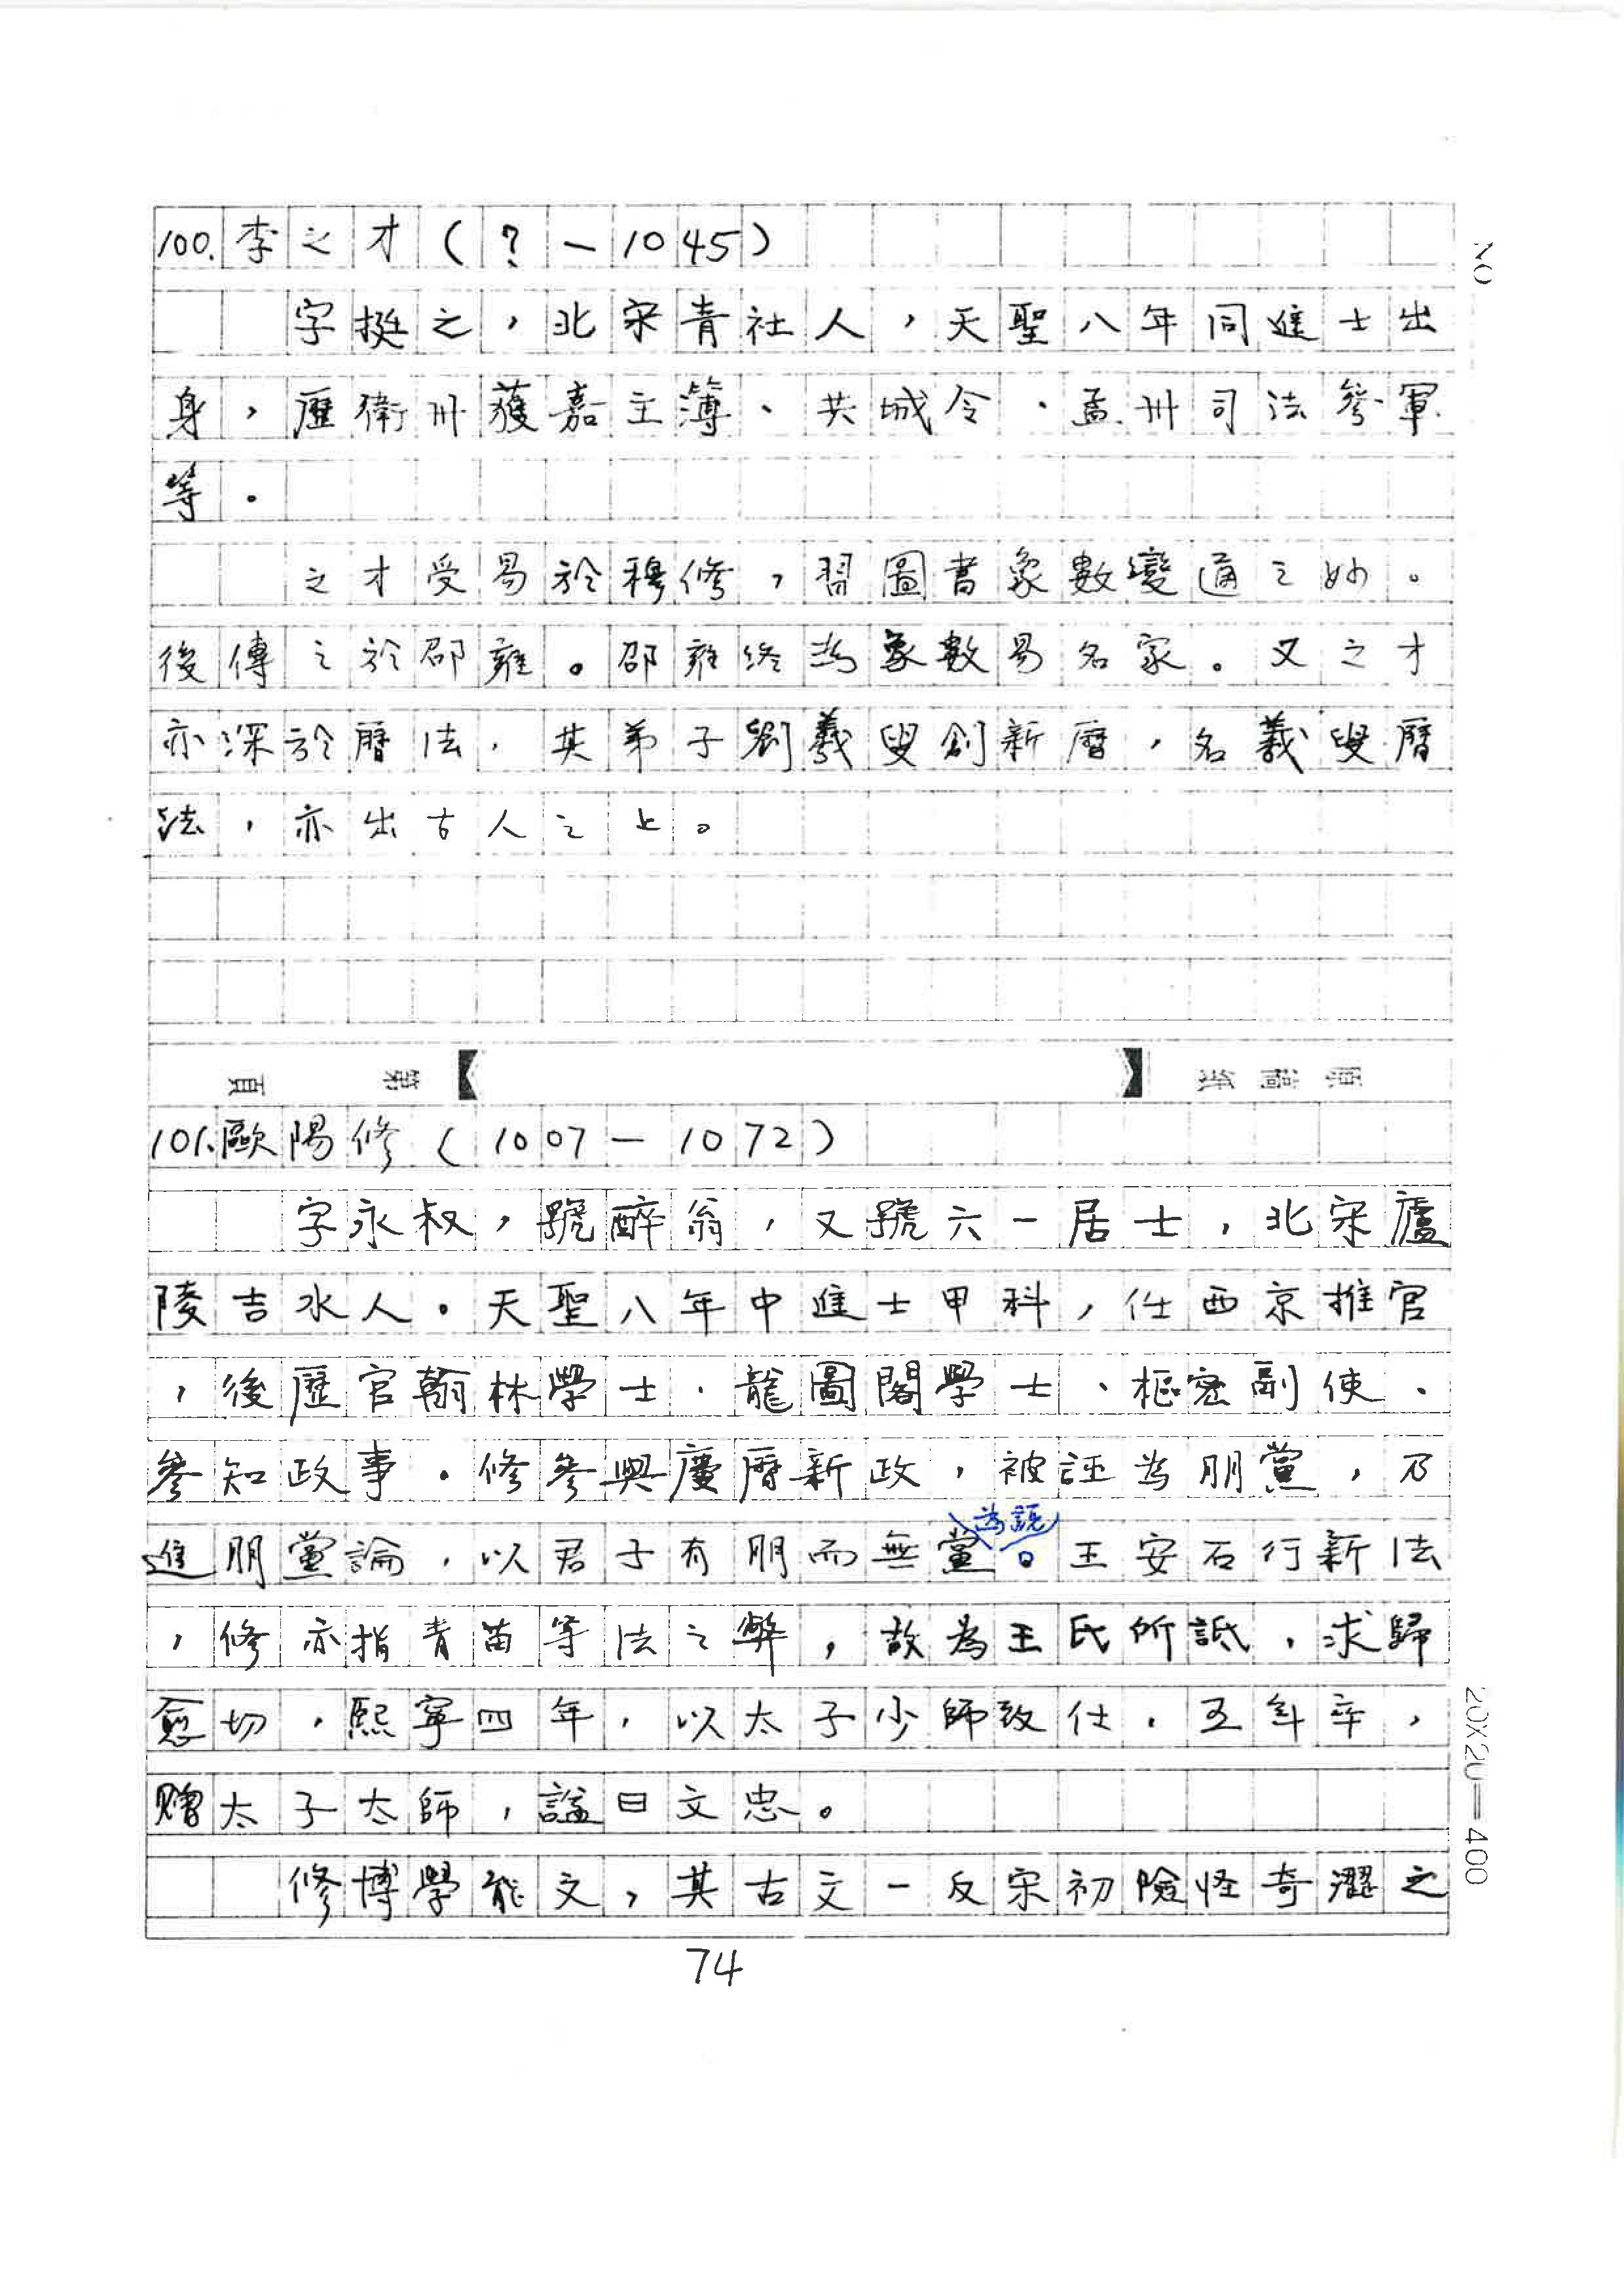 NO
100.李之才(?—1045)
字挺之,北宋青社人,天聖八年同進士出
身,歷衛州獲嘉主簿、共城令、孟州司法參軍
等。
之才受易於穆修,習圖書象數變通之妙。
後傳之於邵雍。邵雍終為象數易名家。又之才
亦深於曆法,其弟子劉羲叟創新曆,名羲叟曆
法,亦出古人之上。
頁 第 紙 稿 原
101.歐陽修(1007—1072)
字永叔,號醉翁,又號六一居士,北宋廬
陵吉水人。天聖八年中進士甲科,任西京推官
,後歷官翰林學士、龍圖閣學士、樞密副使、
參知政事。修參與慶曆新政,被誣為朋黨,乃
進朋黨論,以君子有朋而無黨為說。王安石行新法
,修亦指青苗等法之弊,故為王氏所詆,求歸
愈切,熙寧四年,以太子少師致仕,五年卒,
贈太子太師,諡曰文忠。
修博學能文,其古文一反宋初險怪奇澀之
20X20=400
74